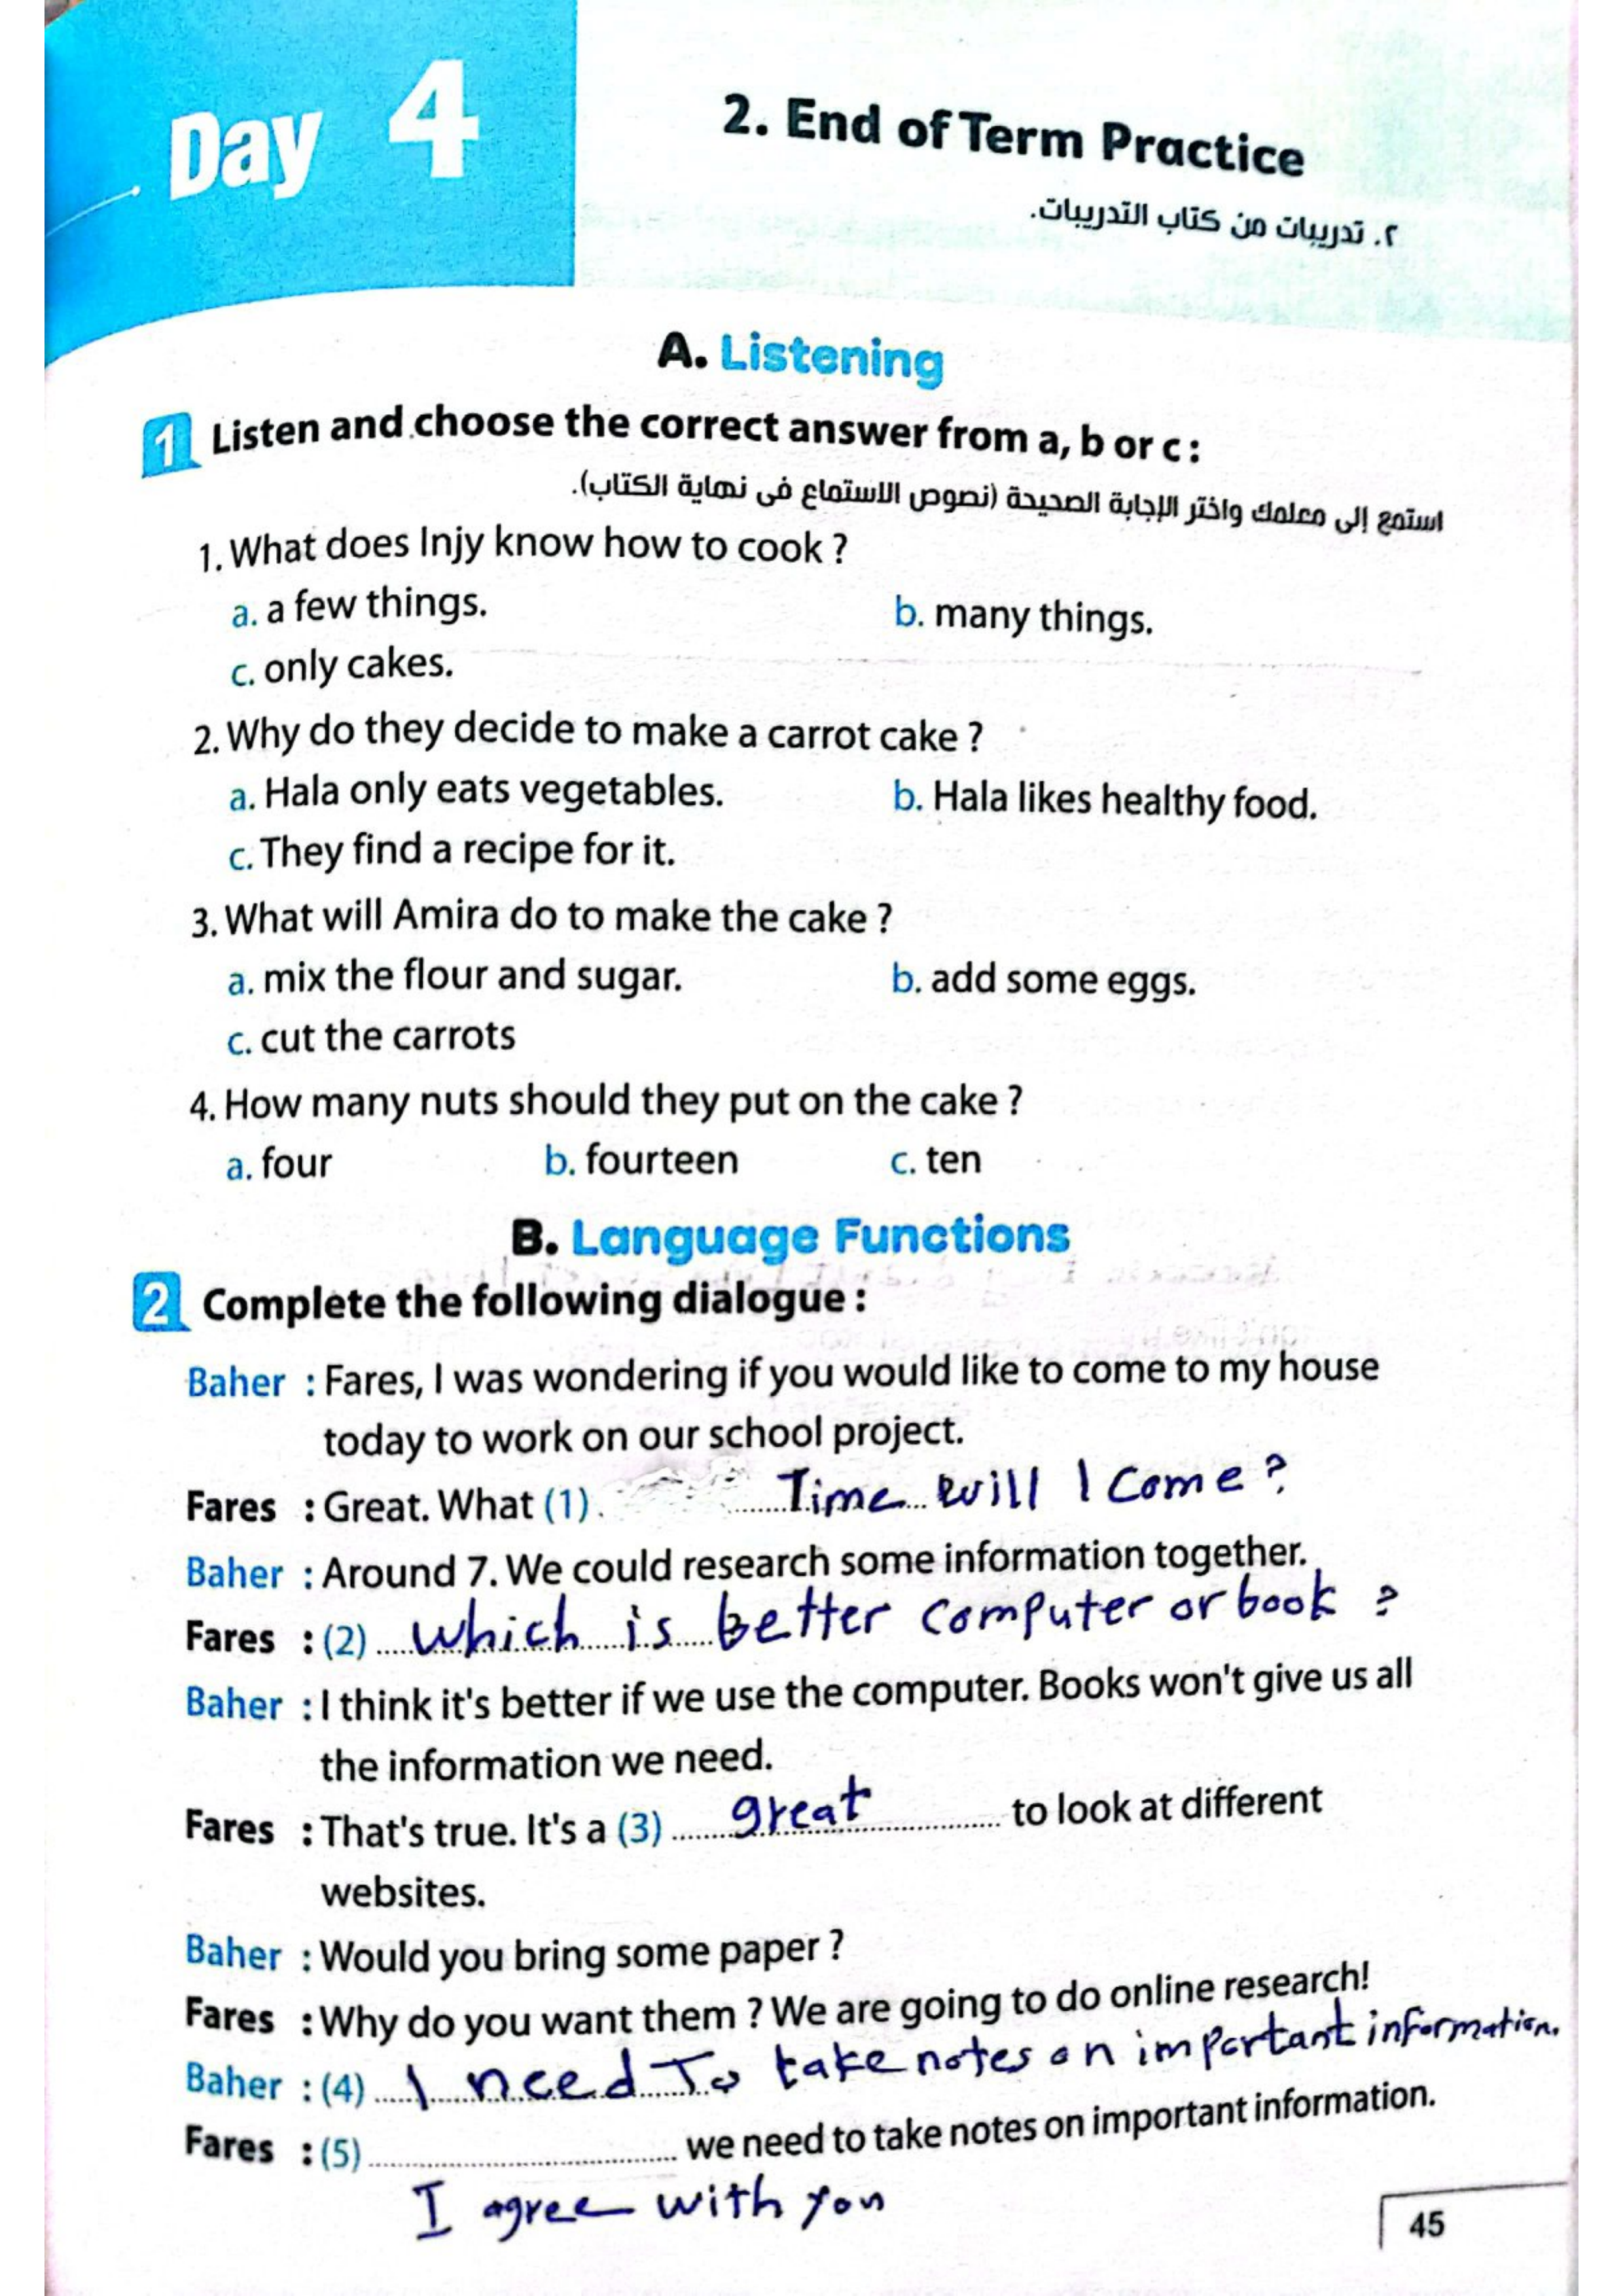 Day 4
2. End of Term Practice
٢. تدريبات من كتاب التدريبات.
A. Listening
1 Listen and choose the correct answer from a, b or c :
استمع إلى معلمك واختر الإجابة الصحيحة (نصوص الاستماع فى نهاية الكتاب).
1. What does Injy know how to cook ?
a. a few things. b. many things.
c. only cakes.
2. Why do they decide to make a carrot cake ?
a. Hala only eats vegetables. b. Hala likes healthy food.
c. They find a recipe for it.
3. What will Amira do to make the cake ?
a. mix the flour and sugar. b. add some eggs.
c. cut the carrots
4. How many nuts should they put on the cake ?
a. four b. fourteen c. ten
B. Language Functions
2 Complete the following dialogue :
Baher : Fares, I was wondering if you would like to come to my house
today to work on our school project.
Fares : Great. What (1) Time will I come ?
Baher : Around 7. We could research some information together.
Fares : (2) which is better computer or book ?
Baher : I think it's better if we use the computer. Books won't give us all
the information we need.
Fares : That's true. It's a (3) great to look at different
websites.
Baher : Would you bring some paper ?
Fares : Why do you want them ? We are going to do online research!
Baher : (4) I need To take notes on important information.
Fares : (5) we need to take notes on important information.
I agree with you
45